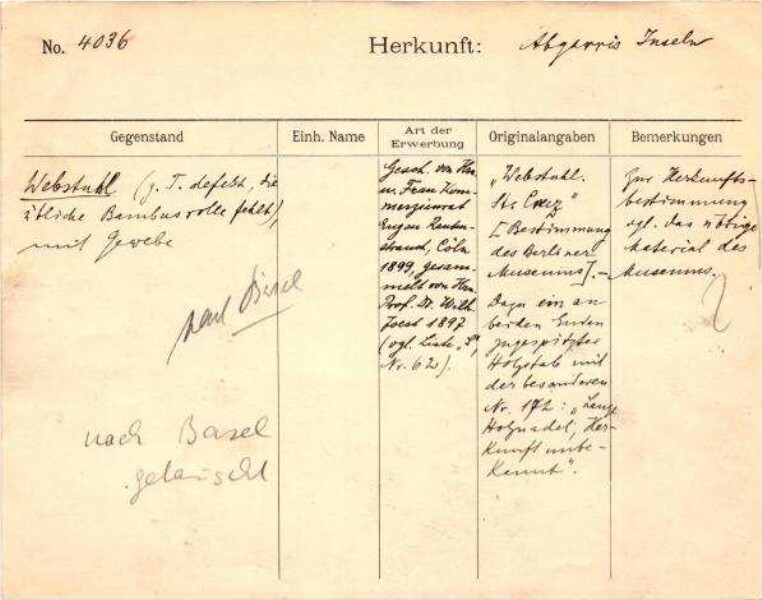 No. 4036 Herkunft: Abgarris Inseln
Gegenstand
Einh. Name
Art der
Erwerbung
Originalangaben
Bemerkungen
Webstuhl (z. T. defekt, die
übliche Bambusrolle fehlt),
mit Gewebe
Gesch. von Hrn.
u. Frau Kom-
merzienrat
Eugen Rauten-
strauch, Cöln
1899, gesam-
melt von Hrn.
Prof. Dr. Wilh.
Joest 1897
(vgl. Liste „S“,
Nr. 62).
„Webstuhl.
Sta Cruz“
[Bestimmung
des Berliner
Museums]. –
Dazu ein an
beiden Enden
zugespitzter
Holzstab mit
der besonderen
Nr. 172: „Lange
Holznadel, Her-
kunft unbe-
kannt“.
Zur Herkunfts-
bestimmung
vgl. das übrige
Material des
Museums.
nach Basel
nach Basel
getauscht